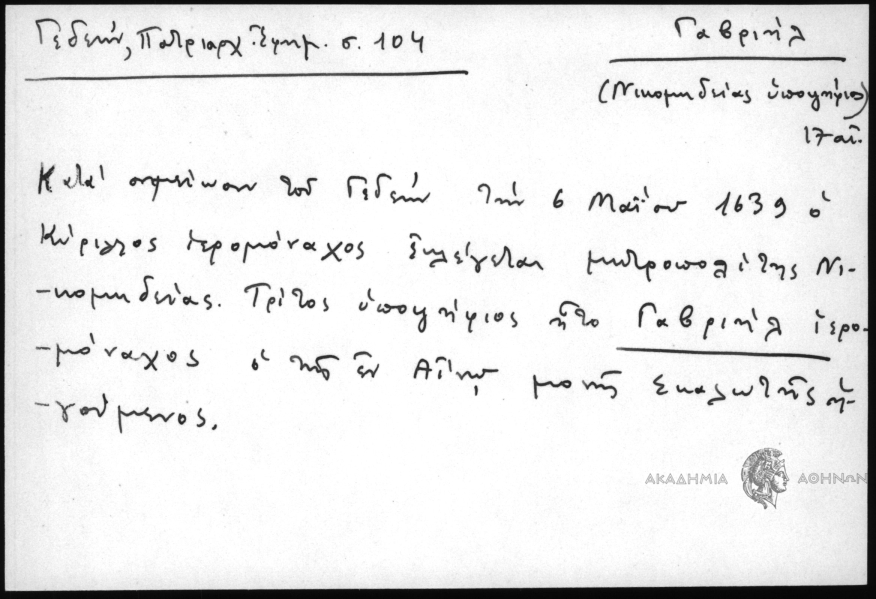 Γεδεών, Πατριαρχ. Ἐφημ. σ. 104
Γαβριήλ
(Νικομηδείας ὑποψήφιος)
17 αἰ.
Κατά σημείωσιν τοῦ Γεδεών τήν 6 Μαΐου 1639 ὁ
Κύριλλος ἱερομόναχος ἐκλέγεται μητροπολίτης Νι-
-κομηδείας. Τρίτος ὑποψήφιος ἦτο Γαβριήλ ἱερο-
-μόναχος ὁ τῆς ἐν Αἴνῳ μονῆς Σκαλωτῆς ἡ-
-γούμενος.
ΑΚΑΔΗΜΙΑ ΑΘΗΝΩΝ